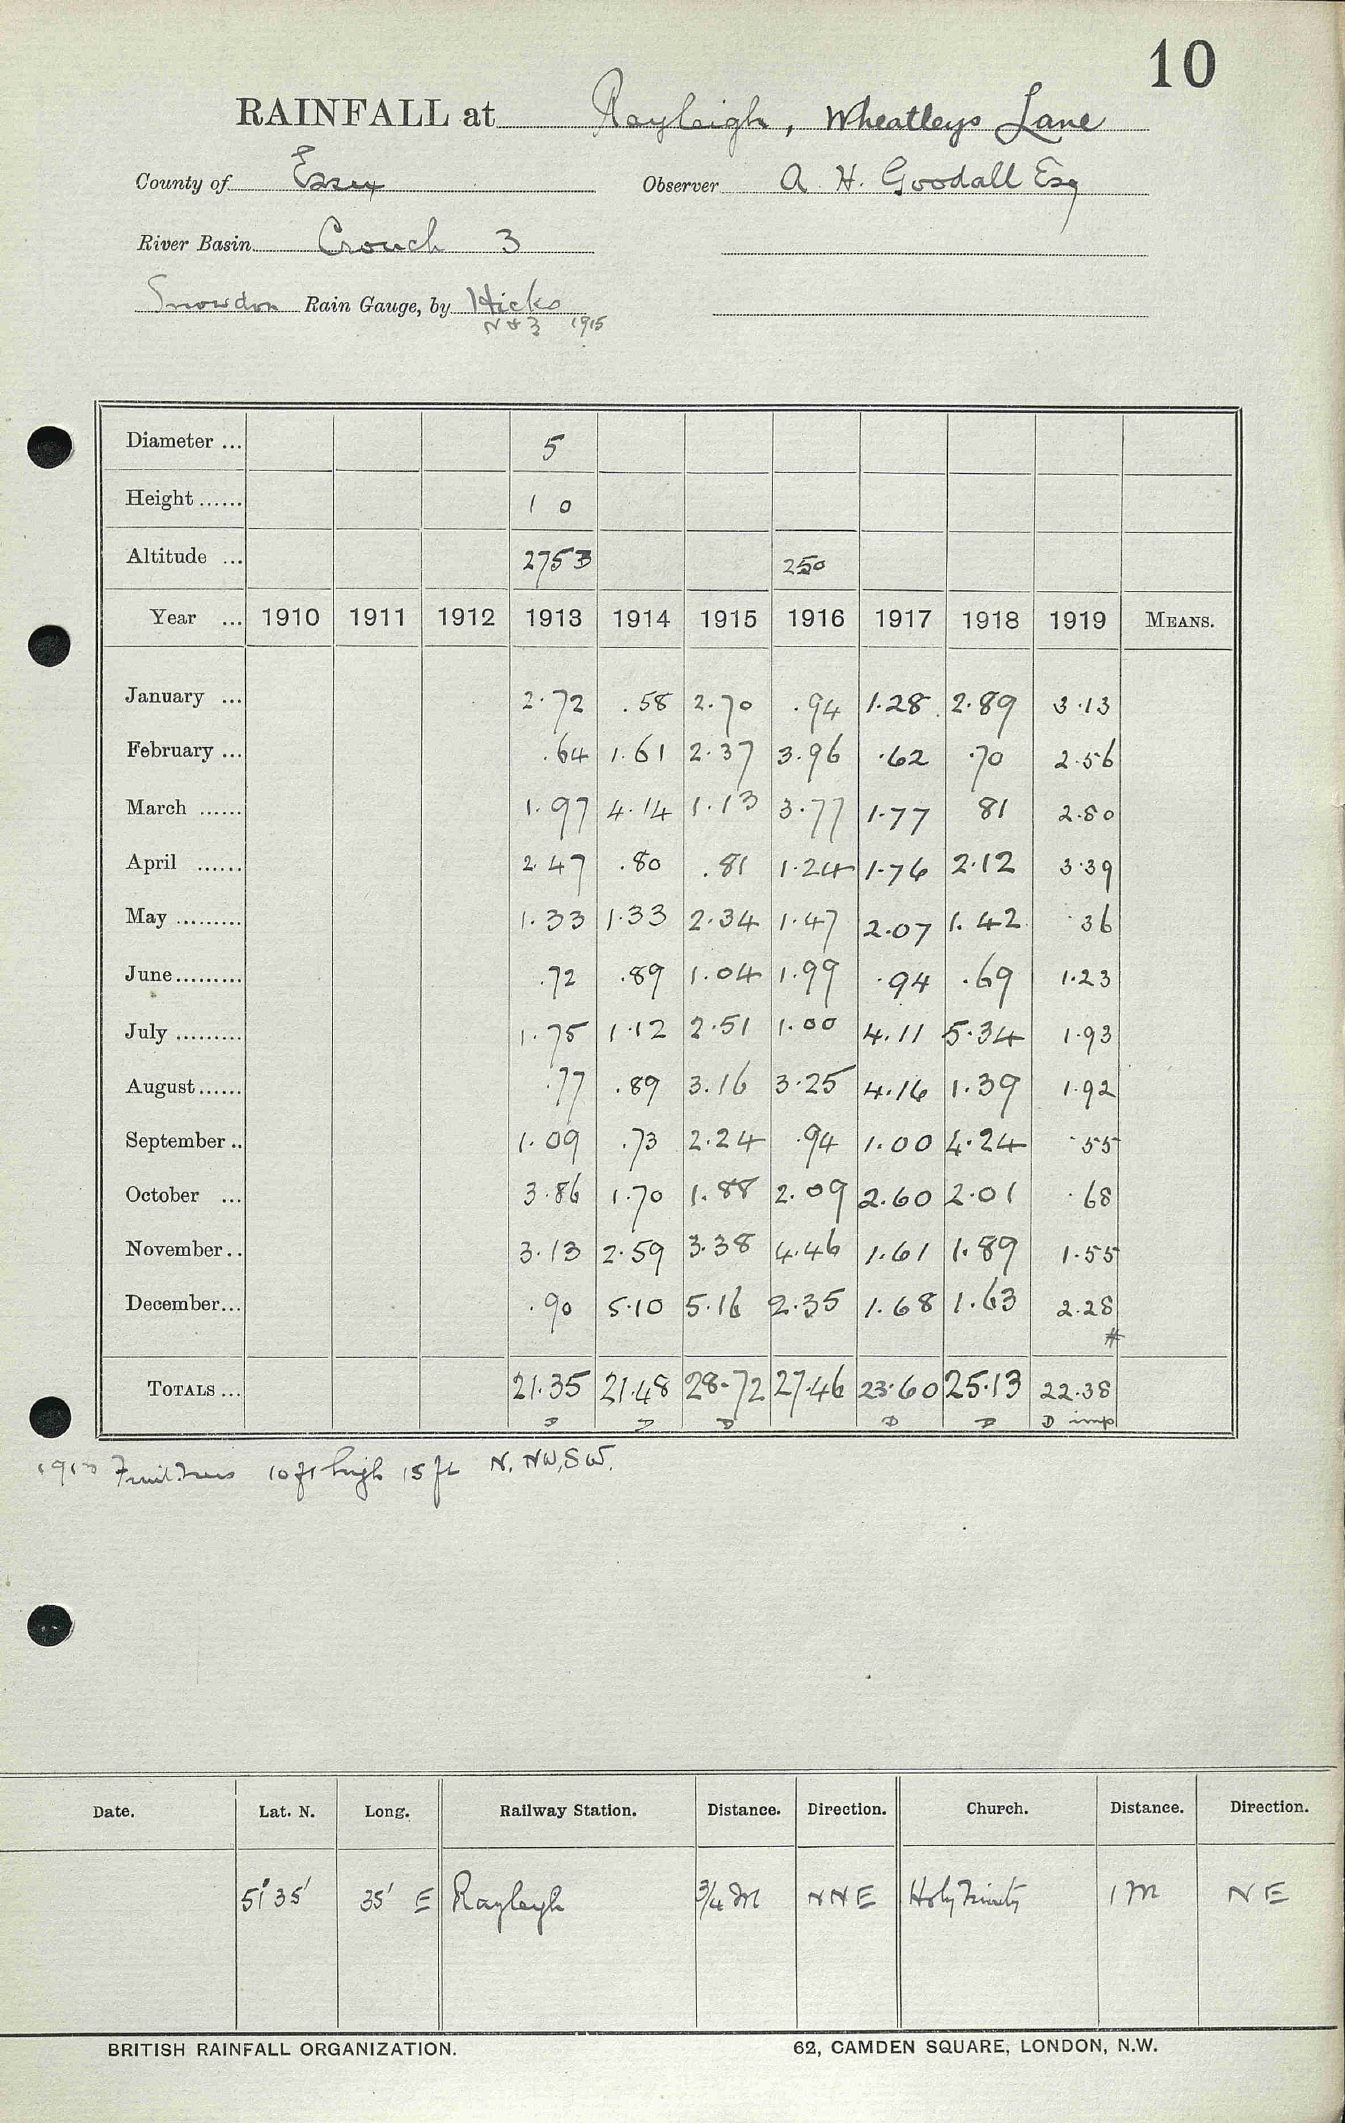 10
RAINFALL at Rayleigh, Wheatleys Lane
County of Essex Observer A. H. Goodall Esq
River Basin Crouch 3
Snowdon Rain Gauge, by Hicks
N & Z 1915
Diameter ... 5
Height ...... 1 0
Altitude ... 2753 250
Year ... 1910 1911 1912 1913 1914 1915 1916 1917 1918 1919 MEANS.
January ... 2.72 .58 2.70 .94 1.28 2.89 3.13
February ... .64 1.61 2.37 3.96 .62 .70 2.56
March ...... 1.97 4.14 1.13 3.77 1.77 81 2.80
April ...... 2.47 .80 .81 1.24 1.76 2.12 3.39
May ......... 1.33 1.33 2.34 1.47 2.07 1.42 .36
June ......... .72 .89 1.04 1.99 .94 .69 1.23
July ......... 1.75 1.12 2.51 1.00 4.11 5.34 1.93
August ...... .77 .89 3.16 3.25 4.16 1.39 1.92
September .. 1.09 .73 2.24 .94 1.00 4.24 .55
October ... 3.86 1.70 1.88 2.09 2.60 2.01 .68
November .. 3.13 2.59 3.38 4.46 1.61 1.89 1.55
December ... .90 5.10 5.16 2.35 1.68 1.63 2.28
#
TOTALS ... 21.35 21.48 28.72 27.46 23.60 25.13 22.38
D D D D D D imp
1913 Fruit trees 10 ft high 15 ft N. NW, SW.
Date. Lat. N. Long. Railway Station. Distance. Direction. Church. Distance. Direction.
51° 35' 35' E Rayleigh 3/4 M NNE Holy Trinity 1 M NE
BRITISH RAINFALL ORGANIZATION. 62, CAMDEN SQUARE, LONDON, N.W.